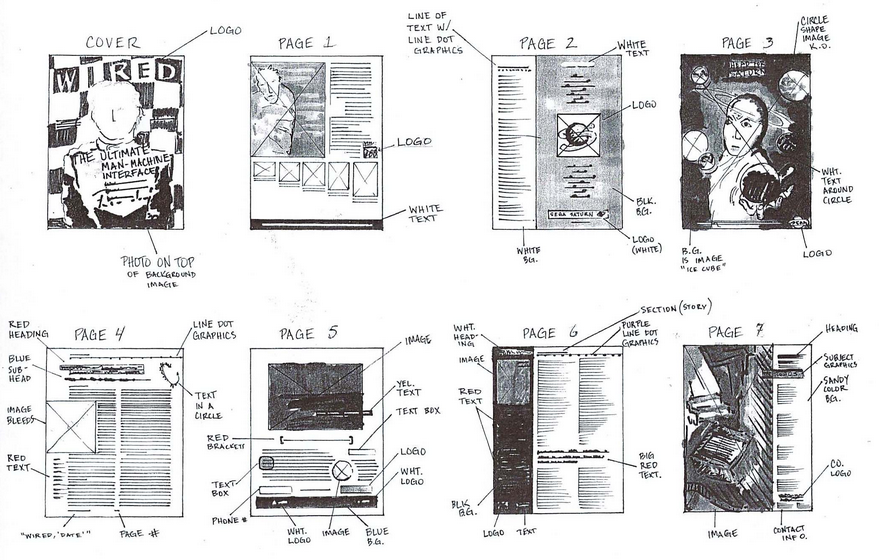 COVER
LOGO
WIRED
THE ULTIMATE
MAN-MACHINE
INTERFACE
PHOTO ON TOP
OF BACKGROUND
IMAGE
PAGE 1
LOGO
WHITE
TEXT
LINE OF
TEXT W/
LINE DOT
GRAPHICS
PAGE 2
WHITE
TEXT
LOGO
BLK.
B.G.
SEGA SATURN
LOGO
(WHITE)
WHITE
BG.
PAGE 3
CIRCLE
SHAPE
IMAGE
K.O.
WHT.
TEXT
AROUND
CIRCLE
B.G.
IS IMAGE
"ICE CUBE"
LOGO
RED
HEADING
PAGE 4
LINE DOT
GRAPHICS
BLUE
SUB-
HEAD
TEXT
IN A
CIRCLE
IMAGE
BLEEDS
RED
TEXT
"WIRED, 'DATE'"
PAGE #
PAGE 5
IMAGE
YEL.
TEXT
TEXT BOX
RED
BRACKETS
LOGO
WHT.
LOGO
TEXT-
BOX
PHONE #
WHT.
LOGO
IMAGE
BLUE
B.G.
PAGE 6
SECTION (STORY)
PURPLE
LINE DOT
GRAPHICS
WHT.
HEAD-
ING
IMAGE
RED
TEXT
BLK.
B.G.
BIG
RED
TEXT.
LOGO
TEXT
PAGE 7
HEADING
SUBJECT
GRAPHICS
SANDY
COLOR
BG.
CO.
LOGO
IMAGE
CONTACT
INFO.